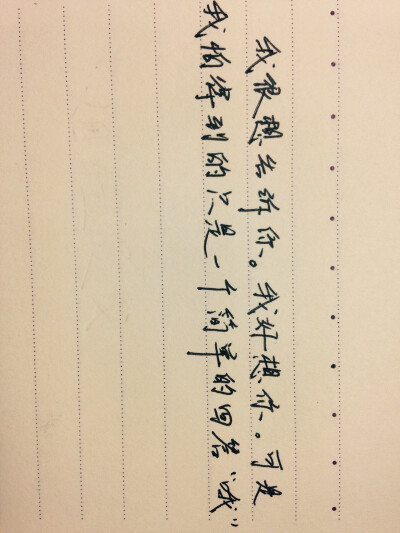 我很想告诉你。我好想你。可是
我怕得到的只是一个简单的回答“哦”